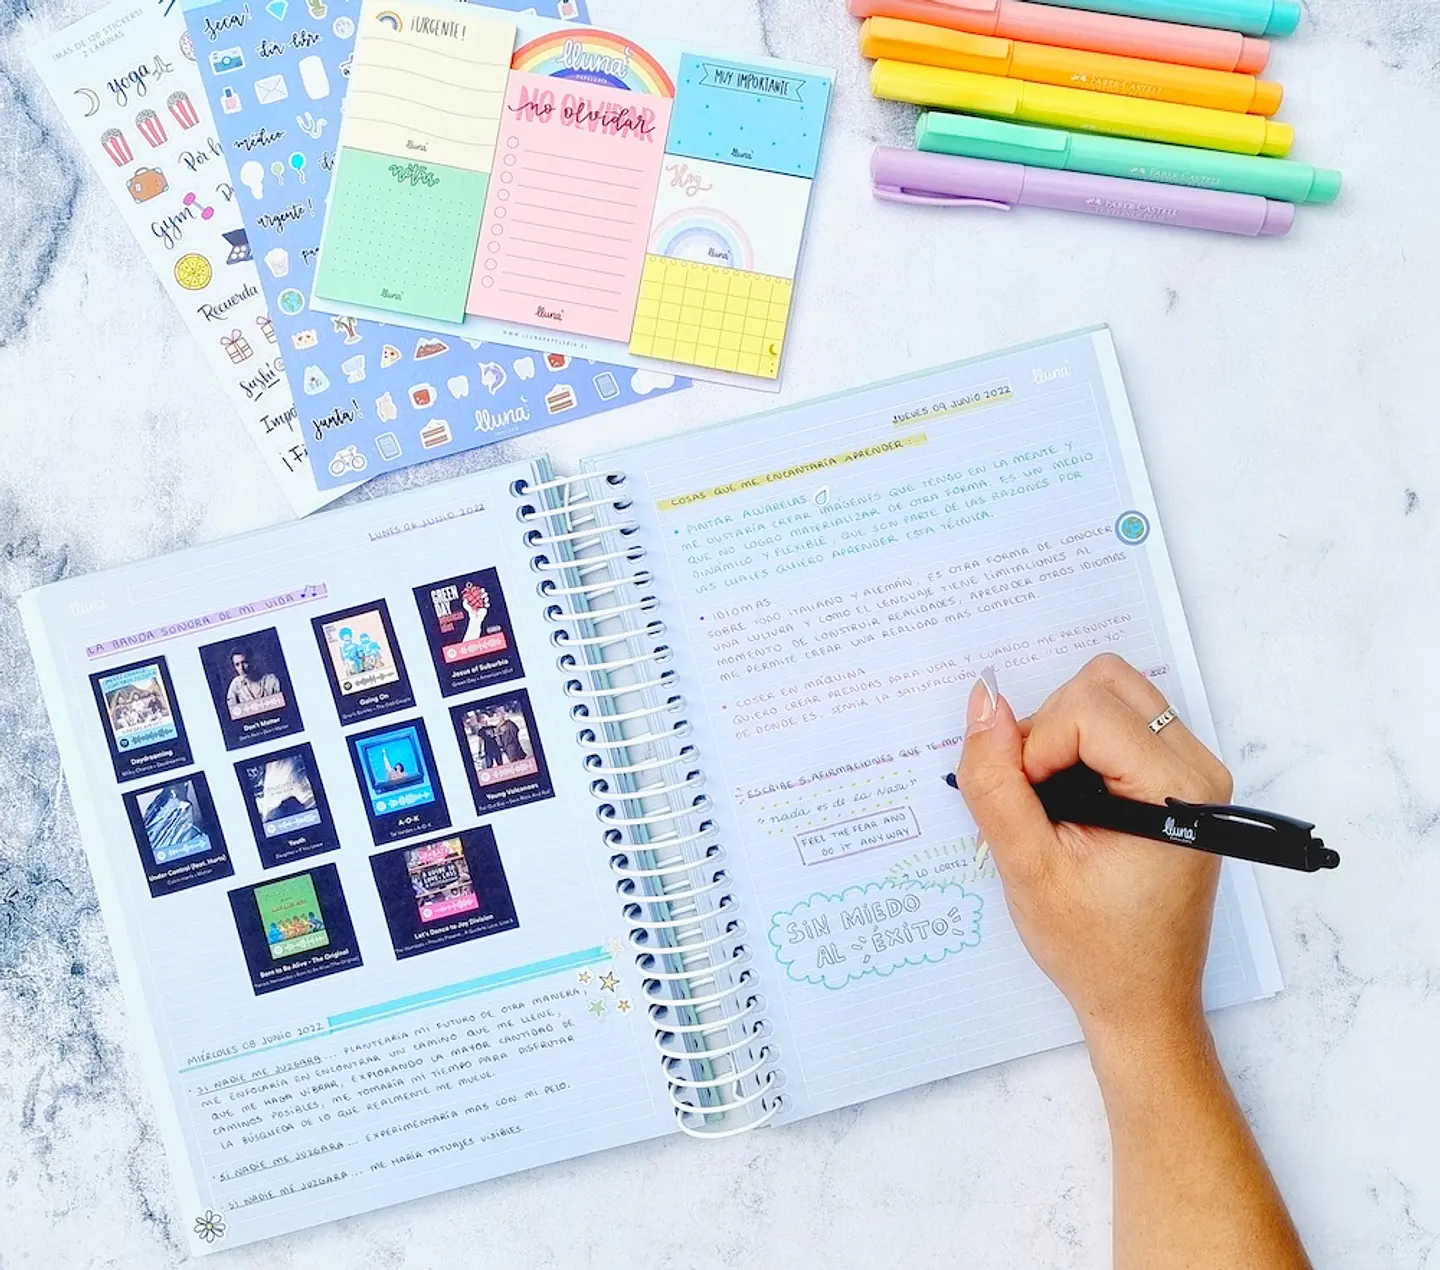 ¡MAS DE 120 STICKERS!
2 LÁMINAS
yoga
Gym
Recuerda
Sushi
seca!
día libre
médico
urgente!
junta!
lluna
¡URGENTE!
lluna
notas
lluna
lluna
PAPELERÍA
NO OLVIDAR
no olvidar
lluna
MUY IMPORTANTE
lluna
Hoy
lluna
WWW.LLUNAPAPELERIA.CL
FABER-CASTELL
FABER-CASTELL
FABER-CASTELL
FABER-CASTELL
TEXTLINER
lluna
LUNES 06 JUNIO 2022
LA BANDA SONORA DE MI VIDA
Daydreaming
Milky Chance • Daydreaming
Don't Matter
Going On
GREEN DAY
Jesus of Suburbia
Green Day • American Idiot
Under Control (feat. Hurts)
Youth
Daughter • If You Leave
A-O-K
Tai Verdes • A-O-K
Young Volcanoes
Fall Out Boy • Save Rock And Roll
Born to Be Alive - The Original
Let's Dance to Joy Division
MIÉRCOLES 08 JUNIO 2022
• SI NADIE ME JUZGARA... PLANTEARÍA MI FUTURO DE OTRA MANERA,
ME ENFOCARÍA EN ENCONTRAR UN CAMINO QUE ME LLENE,
QUE ME HAGA VIBRAR, EXPLORANDO LA MAYOR CANTIDAD DE
CAMINOS POSIBLES, ME TOMARÍA MI TIEMPO PARA DISFRUTAR
LA BÚSQUEDA DE LO QUE REALMENTE ME MUEVE.
• SI NADIE ME JUZGARA... EXPERIMENTARÍA MAS CON MI PELO.
• SI NADIE ME JUZGARA... ME HARÍA TATUAJES VISIBLES.
lluna
JUEVES 09 JUNIO 2022
COSAS QUE ME ENCANTARÍA APRENDER:
• PINTAR ACUARELAS
ME GUSTARÍA CREAR IMÁGENES QUE TENGO EN LA MENTE Y
QUE NO LOGRO MATERIALIZAR DE OTRA FORMA. ES UN MEDIO
DINÁMICO Y FLEXIBLE, QUE SON PARTE DE LAS RAZONES POR
LAS CUALES QUIERO APRENDER ESTA TÉCNICA.
• IDIOMAS
SOBRE TODO ITALIANO Y ALEMÁN, ES OTRA FORMA DE CONOCER
UNA CULTURA Y COMO EL LENGUAJE TIENE LIMITACIONES AL
MOMENTO DE CONSTRUIR REALIDADES, APRENDER OTROS IDIOMAS
ME PERMITE CREAR UNA REALIDAD MAS COMPLETA.
• COSER EN MAQUINA
QUIERO CREAR PRENDAS PARA USAR Y CUANDO ME PREGUNTEN
DE DONDE ES, SENTIR LA SATISFACCIÓN DE DECIR "LO HICE YO".
2022
ESCRIBE 5 AFIRMACIONES QUE TE MOT
"nada es de la NASA"
FEEL THE FEAR AND
DO IT ANYWAY
LO CORTEZ
SIN MIEDO
AL ÉXITO
lluna